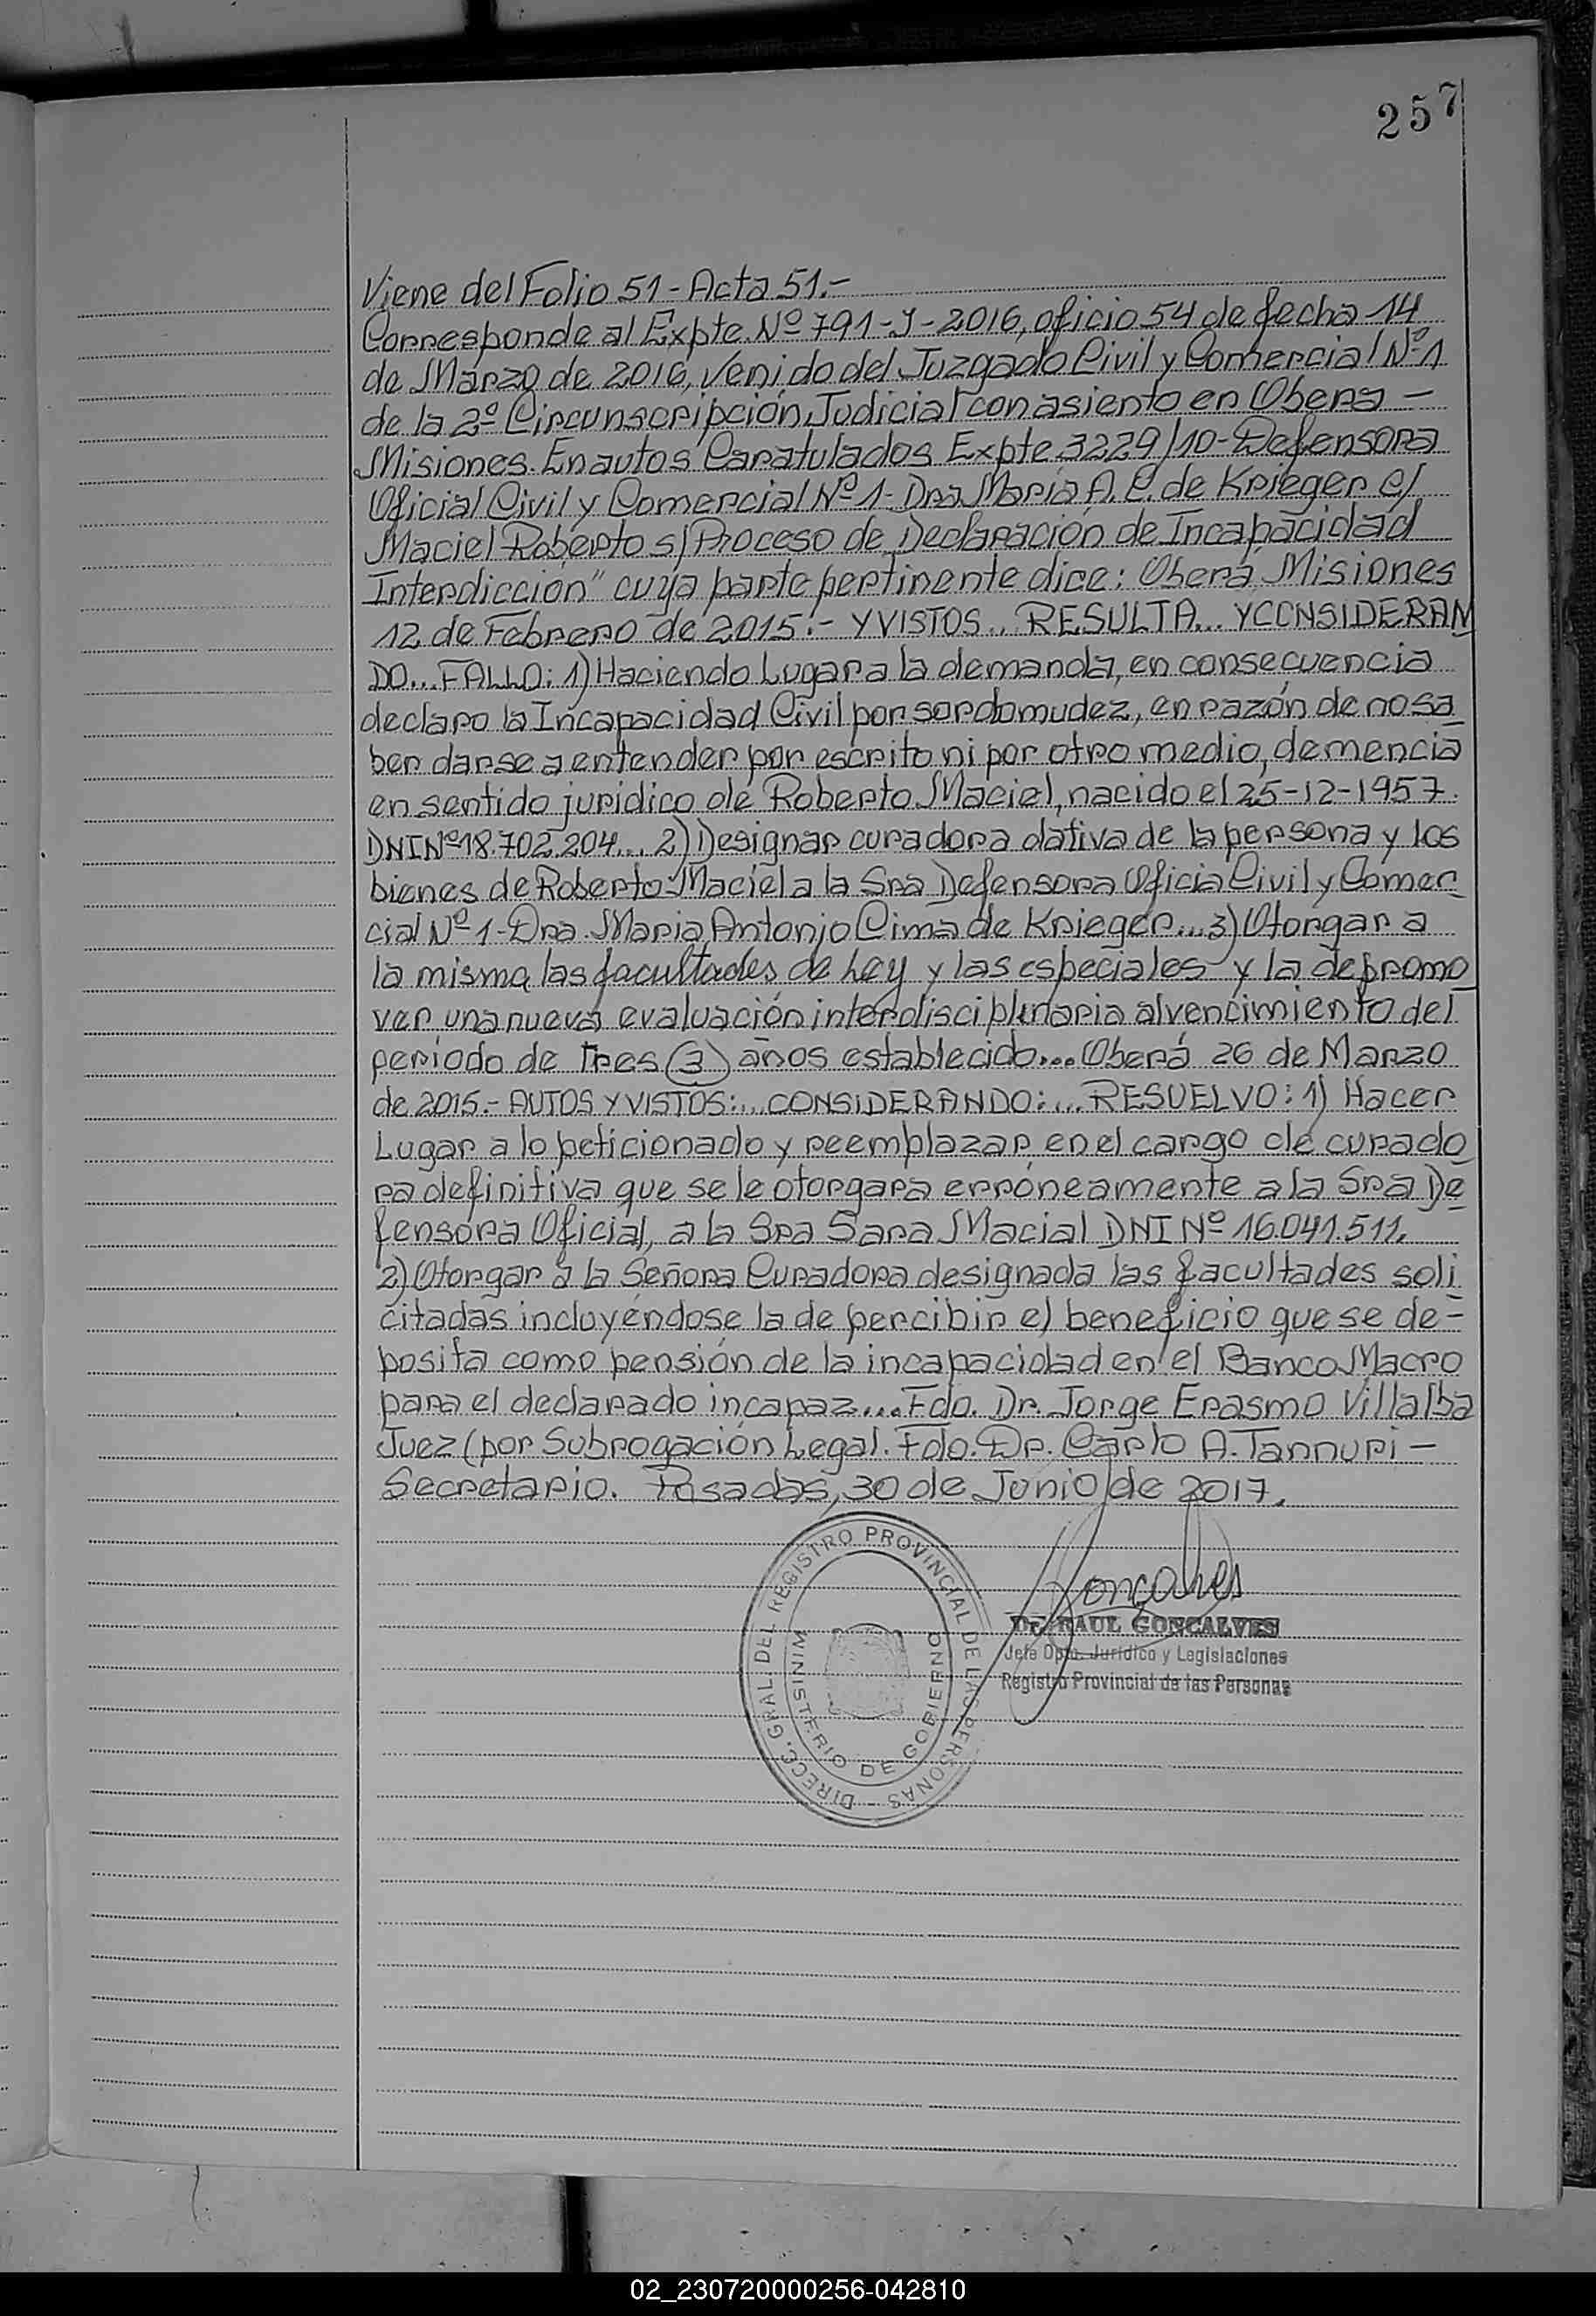 257
Viene del Folio 51 - Acta 51.-
Corresponde al Expte. Nº 791-J-2016, oficio 54 de fecha 14
de Marzo de 2016, venido del Juzgado Civil y Comercial Nº 1
de la 2º Circunscripción Judicial con asiento en Obera -
Misiones. En autos Caratulados Expte 3229/10 - Defensora
Oficial Civil y Comercial Nº 1 - Dra. Maria A. C. de Krieger c/
Maciel Roberto s/ Proceso de Declaración de Incapacidad
Interdicción" cuya parte pertinente dice: Oberá, Misiones
12 de Febrero de 2015.- Y VISTOS... RESULTA... Y CONSIDERAN
DO... FALLO: 1) Haciendo Lugar a la demanda, en consecuencia
declaro la Incapacidad Civil por sordomudez, en razón de no sa
ber darse a entender por escrito ni por otro medio, demencia
en sentido juridico de Roberto Maciel, nacido el 25-12-1957.
DNI Nº 18.702.204... 2) Designar curadora dativa de la persona y los
bienes de Roberto Maciel a la Sra Defensora Oficia Civil y Comer
cial Nº 1 - Dra. Maria Antonio Cima de Krieger... 3) Otorgar a
la misma las facultades de Ley y las especiales y la de promo
ver una nueva evaluación interdisciplinaria al vencimiento del
periodo de Tres (3) años establecido... Oberá 26 de Marzo
de 2015.- AUTOS Y VISTOS:... CONSIDERANDO:... RESUELVO: 1) Hacer
Lugar a lo peticionado y reemplazar en el cargo de curado
ra definitiva que se le otorgara erróneamente a la Sra De
fensora Oficial, a la Sra Sara Macial DNI Nº 16.041.511.
2) Otorgar a la Señora Curadora designada las facultades soli
citadas incluyéndose la de percibir el beneficio que se de-
posita como pensión de la incapacidad en el Banco Macro
para el declarado incapaz... Fdo. Dr. Jorge Erasmo Villalba
Juez (por Subrogación Legal. Fdo. Dr. Carlo A. Tannuri -
Secretario. Posadas, 30 de Junio de 2017.
DIRECC. GRAL. DEL REGISTRO PROVINCIAL DE LAS PERSONAS
MINISTERIO DE GOBIERNO
Gonçalves
Dr. RAUL GONCALVES
Jefe Dpto. Juridico y Legislaciones
Registro Provincial de las Personas
02_230720000256-042810